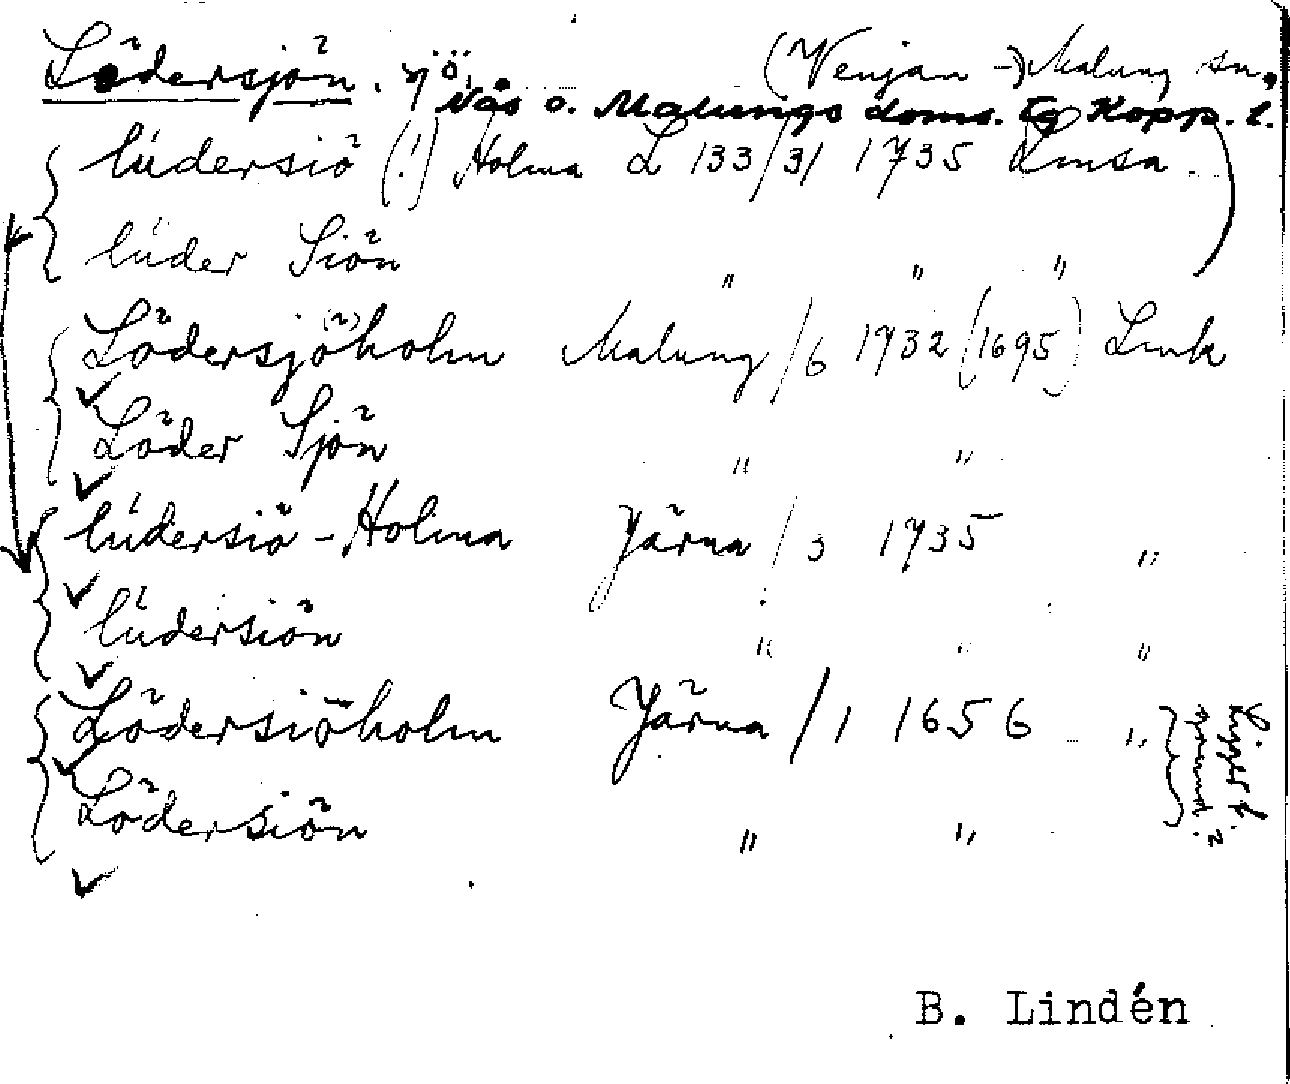 Lödersjön. sjö. (Venjan → Malung sn.
Nås o. Malungs doms. tg Kopp. l.
lüdersiö (!) Holma L 133/31 1735 Lmsa
lüder Siön " " " )
Lödersjöholm Malung /6 1732 (1695) Lmk
Löder Sjön " "
lüdersiö-Holma Järna /3 1735 "
lüdersiön " " "
Lödersiöholm Järna /1 1656 "
Lödersiön " "
Ligger h.
B. Lindén